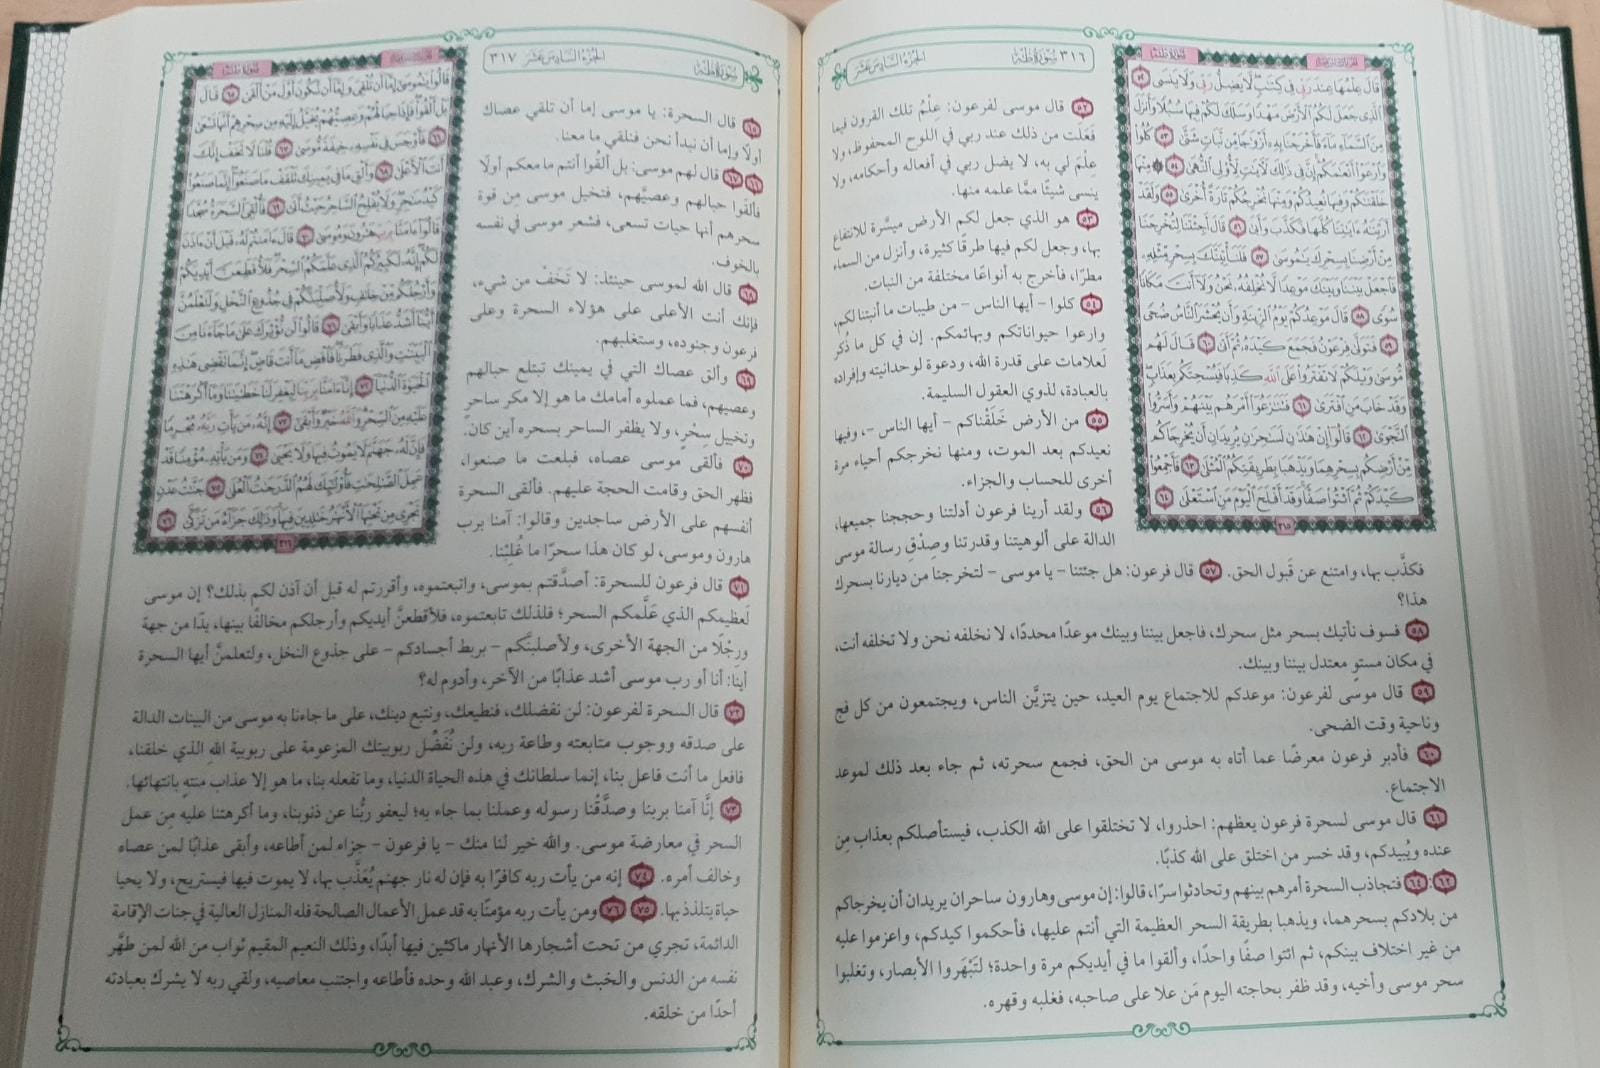 ٣١٦ سُورَةُ طه
الجُزءُ السَّادِسَ عَشَرَ
سُورَةُ طه
قَالَ عِلْمُهَا عِندَ رَبِّي فِي كِتَٰبٖۖ لَّا يَضِلُّ رَبِّي وَلَا يَنسَى ٥٢
ٱلَّذِي جَعَلَ لَكُمُ ٱلۡأَرۡضَ مَهۡدٗا وَسَلَكَ لَكُمۡ فِيهَا سُبُلٗا وَأَنزَلَ
مِنَ ٱلسَّمَآءِ مَآءٗ فَأَخۡرَجۡنَا بِهِۦٓ أَزۡوَٰجٗا مِّن نَّبَاتٖ شَتَّىٰ ٥٣ كُلُواْ
وَٱرۡعَوۡاْ أَنۡعَٰمَكُمۡۚ إِنَّ فِي ذَٰلِكَ لَأٓيَٰتٖ لِّأُوْلِي ٱلنُّهَىٰ ٥٤ ۞ مِنۡهَا
خَلَقۡنَٰكُمۡ وَفِيهَا نُعِيدُكُمۡ وَمِنۡهَا نُخۡرِجُكُمۡ تَارَةً أُخۡرَىٰ ٥٥ وَلَقَدۡ
أَرَيۡنَٰهُ ءَايَٰتِنَا كُلَّهَا فَكَذَّبَ وَأَبَىٰ ٥٦ قَالَ أَجِئۡتَنَا لِتُخۡرِجَنَا
مِنۡ أَرۡضِنَا بِسِحۡرِكَ يَٰمُوسَىٰ ٥٧ فَلَنَأۡتِيَنَّكَ بِسِحۡرٖ مِّثۡلِهِۦ
فَٱجۡعَلۡ بَيۡنَنَا وَبَيۡنَكَ مَوۡعِدٗا لَّا نُخۡلِفُهُۥ نَحۡنُ وَلَآ أَنتَ مَكَانٗا
سُوٗى ٥٨ قَالَ مَوۡعِدُكُمۡ يَوۡمُ ٱلزِّينَةِ وَأَن يُحۡشَرَ ٱلنَّاسُ ضُحٗى
٥٩ فَتَوَلَّىٰ فِرۡعَوۡنُ فَجَمَعَ كَيۡدَهُۥ ثُمَّ أَتَىٰ ٦٠ قَالَ لَهُم
مُّوسَىٰ وَيۡلَكُمۡ لَا تَفۡتَرُواْ عَلَى ٱللَّهِ كَذِبٗا فَيُسۡحِتَكُم بِعَذَابٖۖ
وَقَدۡ خَابَ مَنِ ٱفۡتَرَىٰ ٦١ فَتَنَٰزَعُوٓاْ أَمۡرَهُم بَيۡنَهُمۡ وَأَسَرُّواْ
ٱلنَّجۡوَىٰ ٦٢ قَالُوٓاْ إِنۡ هَٰذَٰنِ لَسَٰحِرَٰنِ يُرِيدَانِ أَن يُخۡرِجَاكُم
مِّنۡ أَرۡضِكُم بِسِحۡرِهِمَا وَيَذۡهَبَا بِطَرِيقَتِكُمُ ٱلۡمُثۡلَىٰ ٦٣ فَأَجۡمِعُواْ
كَيۡدَكُمۡ ثُمَّ ٱئۡتُواْ صَفّٗاۚ وَقَدۡ أَفۡلَحَ ٱلۡيَوۡمَ مَنِ ٱسۡتَعۡلَىٰ ٦٤
٣١٥
٥٢ قال موسى لفرعون: عِلْمُ تلك القرون فيما
فَعَلَت من ذلك عند ربي في اللوح المحفوظ، ولا
عِلْمَ لي به، لا يضل ربي في أفعاله وأحكامه، ولا
ينسى شيئًا ممَّا علمه منها.
٥٣ هو الذي جعل لكم الأرض ميسَّرة للانتفاع
بها، وجعل لكم فيها طرقًا كثيرة، وأنزل من السماء
مطرًا، فأخرج به أنواعًا مختلفة من النبات.
٥٤ كلوا - أيها الناس - من طيبات ما أنبتنا لكم،
وارعوا حيواناتكم وبهائمكم. إن في كل ما ذُكر
لَعلامات على قدرة الله، ودعوة لوحدانيته وإفراده
بالعبادة، لذوي العقول السليمة.
٥٥ من الأرض خَلَقْناكم - أيها الناس -، وفيها
نعيدكم بعد الموت، ومنها نخرجكم أحياء مرة
أخرى للحساب والجزاء.
٥٦ ولقد أرينا فرعون أدلتنا وحججنا جميعها،
الدالة على ألوهيتنا وقدرتنا وصِدْقِ رسالة موسى
فكذَّب بها، وامتنع عن قَبول الحق. ٥٧ قال فرعون: هل جئتنا - يا موسى - لتخرجنا من ديارنا بسحرك
هذا؟
٥٨ فسوف نأتيك بسحر مثل سحرك، فاجعل بيننا وبينك موعدًا محددًا، لا نخلفه نحن ولا تخلفه أنت،
في مكان مستوٍ معتدل بيننا وبينك.
٥٩ قال موسى لفرعون: موعدكم للاجتماع يوم العيد، حين يتزيَّن الناس، ويجتمعون من كل فج
وناحية وقت الضحى.
٦٠ فأدبر فرعون معرضًا عما أتاه به موسى من الحق، فجمع سحرته، ثم جاء بعد ذلك لموعد
الاجتماع.
٦١ قال موسى لسحرة فرعون يعظهم: احذروا، لا تختلقوا على الله الكذب، فيستأصلكم بعذاب مِن
عنده ويُبيدكم، وقد خسر من اختلق على الله كذبًا.
٦٢: ٦٤ فتجاذب السحرة أمرهم بينهم وتحادثوا سرًا، قالوا: إن موسى وهارون ساحران يريدان أن يخرجاكم
من بلادكم بسحرهما، ويذهبا بطريقة السحر العظيمة التي أنتم عليها، فأحكموا كيدكم، واعزموا عليه
من غير اختلاف بينكم، ثم ائتوا صفًا واحدًا، وألقوا ما في أيديكم مرة واحدة؛ لتَبْهَروا الأبصار، وتغلبوا
سحر موسى وأخيه، وقد ظفر بحاجته اليوم مَن علا على صاحبه، فغلبه وقهره.
سُورَةُ طه
الجُزءُ السَّادِسَ عَشَرَ ٣١٧
سُورَةُ طه
قَالُواْ يَٰمُوسَىٰٓ إِمَّآ أَن تُلۡقِيَ وَإِمَّآ أَن نَّكُونَ أَوَّلَ مَنۡ أَلۡقَىٰ ٦٥ قَالَ
بَلۡ أَلۡقُواْۖ فَإِذَا حِبَالُهُمۡ وَعِصِيُّهُمۡ يُخَيَّلُ إِلَيۡهِ مِن سِحۡرِهِمۡ أَنَّهَا تَسۡعَىٰ
٦٦ فَأَوۡجَسَ فِي نَفۡسِهِۦ خِيفَةٗ مُّوسَىٰ ٦٧ قُلۡنَا لَا تَخَفۡ إِنَّكَ
أَنتَ ٱلۡأَعۡلَىٰ ٦٨ وَأَلۡقِ مَا فِي يَمِينِكَ تَلۡقَفۡ مَا صَنَعُوٓاْۖ إِنَّمَا صَنَعُواْ
كَيۡدُ سَٰحِرٖۖ وَلَا يُفۡلِحُ ٱلسَّاحِرُ حَيۡثُ أَتَىٰ ٦٩ فَأُلۡقِيَ ٱلسَّحَرَةُ سُجَّدٗا
قَالُوٓاْ ءَامَنَّا بِرَبِّ هَٰرُونَ وَمُوسَىٰ ٧٠ قَالَ ءَامَنتُمۡ لَهُۥ قَبۡلَ أَنۡ ءَاذَنَ
لَكُمۡۖ إِنَّهُۥ لَكَبِيرُكُمُ ٱلَّذِي عَلَّمَكُمُ ٱلسِّحۡرَۖ فَلَأُقَطِّعَنَّ أَيۡدِيَكُمۡ
وَأَرۡجُلَكُم مِّنۡ خِلَٰفٖ وَلَأُصَلِّبَنَّكُمۡ فِي جُذُوعِ ٱلنَّخۡلِ وَلَتَعۡلَمُنَّ
أَيُّنَآ أَشَدُّ عَذَابٗا وَأَبۡقَىٰ ٧١ قَالُواْ لَن نُّؤۡثِرَكَ عَلَىٰ مَا جَآءَنَا مِنَ
ٱلۡبَيِّنَٰتِ وَٱلَّذِي فَطَرَنَاۖ فَٱقۡضِ مَآ أَنتَ قَاضٍۖ إِنَّمَا تَقۡضِي هَٰذِهِ
ٱلۡحَيَوٰةَ ٱلدُّنۡيَآ ٧٢ إِنَّآ ءَامَنَّا بِرَبِّنَا لِيَغۡفِرَ لَنَا خَطَٰيَٰنَا وَمَآ أَكۡرَهۡتَنَا
عَلَيۡهِ مِنَ ٱلسِّحۡرِۗ وَٱللَّهُ خَيۡرٞ وَأَبۡقَىٰٓ ٧٣ إِنَّهُۥ مَن يَأۡتِ رَبَّهُۥ مُجۡرِمٗا
فَإِنَّ لَهُۥ جَهَنَّمَ لَا يَمُوتُ فِيهَا وَلَا يَحۡيَىٰ ٧٤ وَمَن يَأۡتِهِۦ مُؤۡمِنٗا قَدۡ
عَمِلَ ٱلصَّٰلِحَٰتِ فَأُوْلَٰٓئِكَ لَهُمُ ٱلدَّرَجَٰتُ ٱلۡعُلَىٰ ٧٥ جَنَّٰتُ عَدۡنٖ
تَجۡرِي مِن تَحۡتِهَا ٱلۡأَنۡهَٰرُ خَٰلِدِينَ فِيهَاۚ وَذَٰلِكَ جَزَآءُ مَن تَزَكَّىٰ ٧٦
٣١٦
٦٥ قال السحرة: يا موسى إما أن تلقي عصاك
أولًا وإما أن نبدأ نحن فنلقي ما معنا.
٦٦ ٦٧ قال لهم موسى: بل ألقُوا أنتم ما معكم أولًا
فألقَوا حبالهم وعصيَّهم، فتخيل موسى مِن قوة
سحرهم أنها حيات تسعى، فشعر موسى في نفسه
بالخوف.
٦٨ قال الله لموسى حينئذ: لا تَخَفْ من شيء،
فإنك أنت الأعلى على هؤلاء السحرة وعلى
فرعون وجنوده، وستغلبهم.
٦٩ وألق عصاك التي في يمينك تبتلع حبالهم
وعصيهم، فما عملوه أمامك ما هو إلا مكر ساحرٍ
وتخييل سِحْرٍ، ولا يظفر الساحر بسحره أين كان.
٧٠ فألقى موسى عصاه، فبلعت ما صنعوا،
فظهر الحق وقامت الحجة عليهم. فألقى السحرة
أنفسهم على الأرض ساجدين وقالوا: آمنا برب
هارون وموسى، لو كان هذا سحرًا ما غُلِبْنا.
٧١ قال فرعون للسحرة: أصدَّقتم بموسى، واتبعتموه، وأقررتم له قبل أن آذن لكم بذلك؟ إن موسى
لَعظيمكم الذي عَلَّمكم السحر؛ فلذلك تابعتموه، فلأقطعنَّ أيديكم وأرجلكم مخالفًا بينها، يدًا من جهة
ورِجْلًا من الجهة الأخرى، ولأصلبنَّكم - بربط أجسادكم - على جذوع النخل، ولتعلمنَّ أيها السحرة
أينا: أنا أو رب موسى أشد عذابًا من الآخر، وأدوم له؟
٧٢ قال السحرة لفرعون: لن نفضلك، فنطيعك، ونتبع دينك، على ما جاءنا به موسى من البينات الدالة
على صدقه ووجوب متابعته وطاعة ربه، ولن نُفَضِّل ربوبيتك المزعومة على ربوبية اللهِ الذي خلقنا،
فافعل ما أنت فاعل بنا، إنما سلطانك في هذه الحياة الدنيا، وما تفعله بنا، ما هو إلا عذاب منتهٍ بانتهائها.
٧٣ إنَّا آمنا بربنا وصدَّقْنا رسوله وعملنا بما جاء به؛ ليعفو ربُّنا عن ذنوبنا، وما أكرهتنا عليه مِن عمل
السحر في معارضة موسى. والله خير لنا منك - يا فرعون - جزاء لمن أطاعه، وأبقى عذابًا لمن عصاه
وخالف أمره. ٧٤ إنه من يأت ربه كافرًا به فإن له نار جهنم يُعَذَّب بها، لا يموت فيها فيستريح، ولا يحيا
حياة يتلذذ بها. ٧٥ ٧٦ ومن يأت ربه مؤمنًا به قد عمل الأعمال الصالحة فله المنازل العالية في جنات الإقامة
الدائمة، تجري من تحت أشجارها الأنهار ماكثين فيها أبدًا، وذلك النعيم المقيم ثواب من الله لمن طهَّر
نفسه من الدنس والخبث والشرك، وعبد الله وحده فأطاعه واجتنب معاصيه، ولقي ربه لا يشرك بعبادته
أحدًا من خلقه.